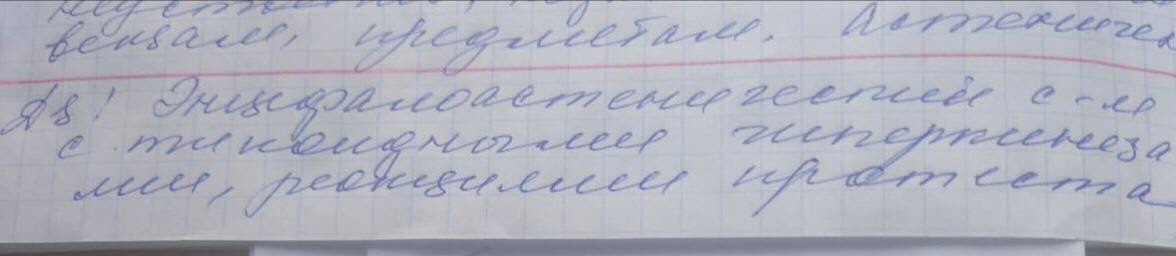 вещам, предметам. Астеничес
Ds! Энцефалоастенический с-м
с тикоидными гиперкинеза
ми, реакциями протеста